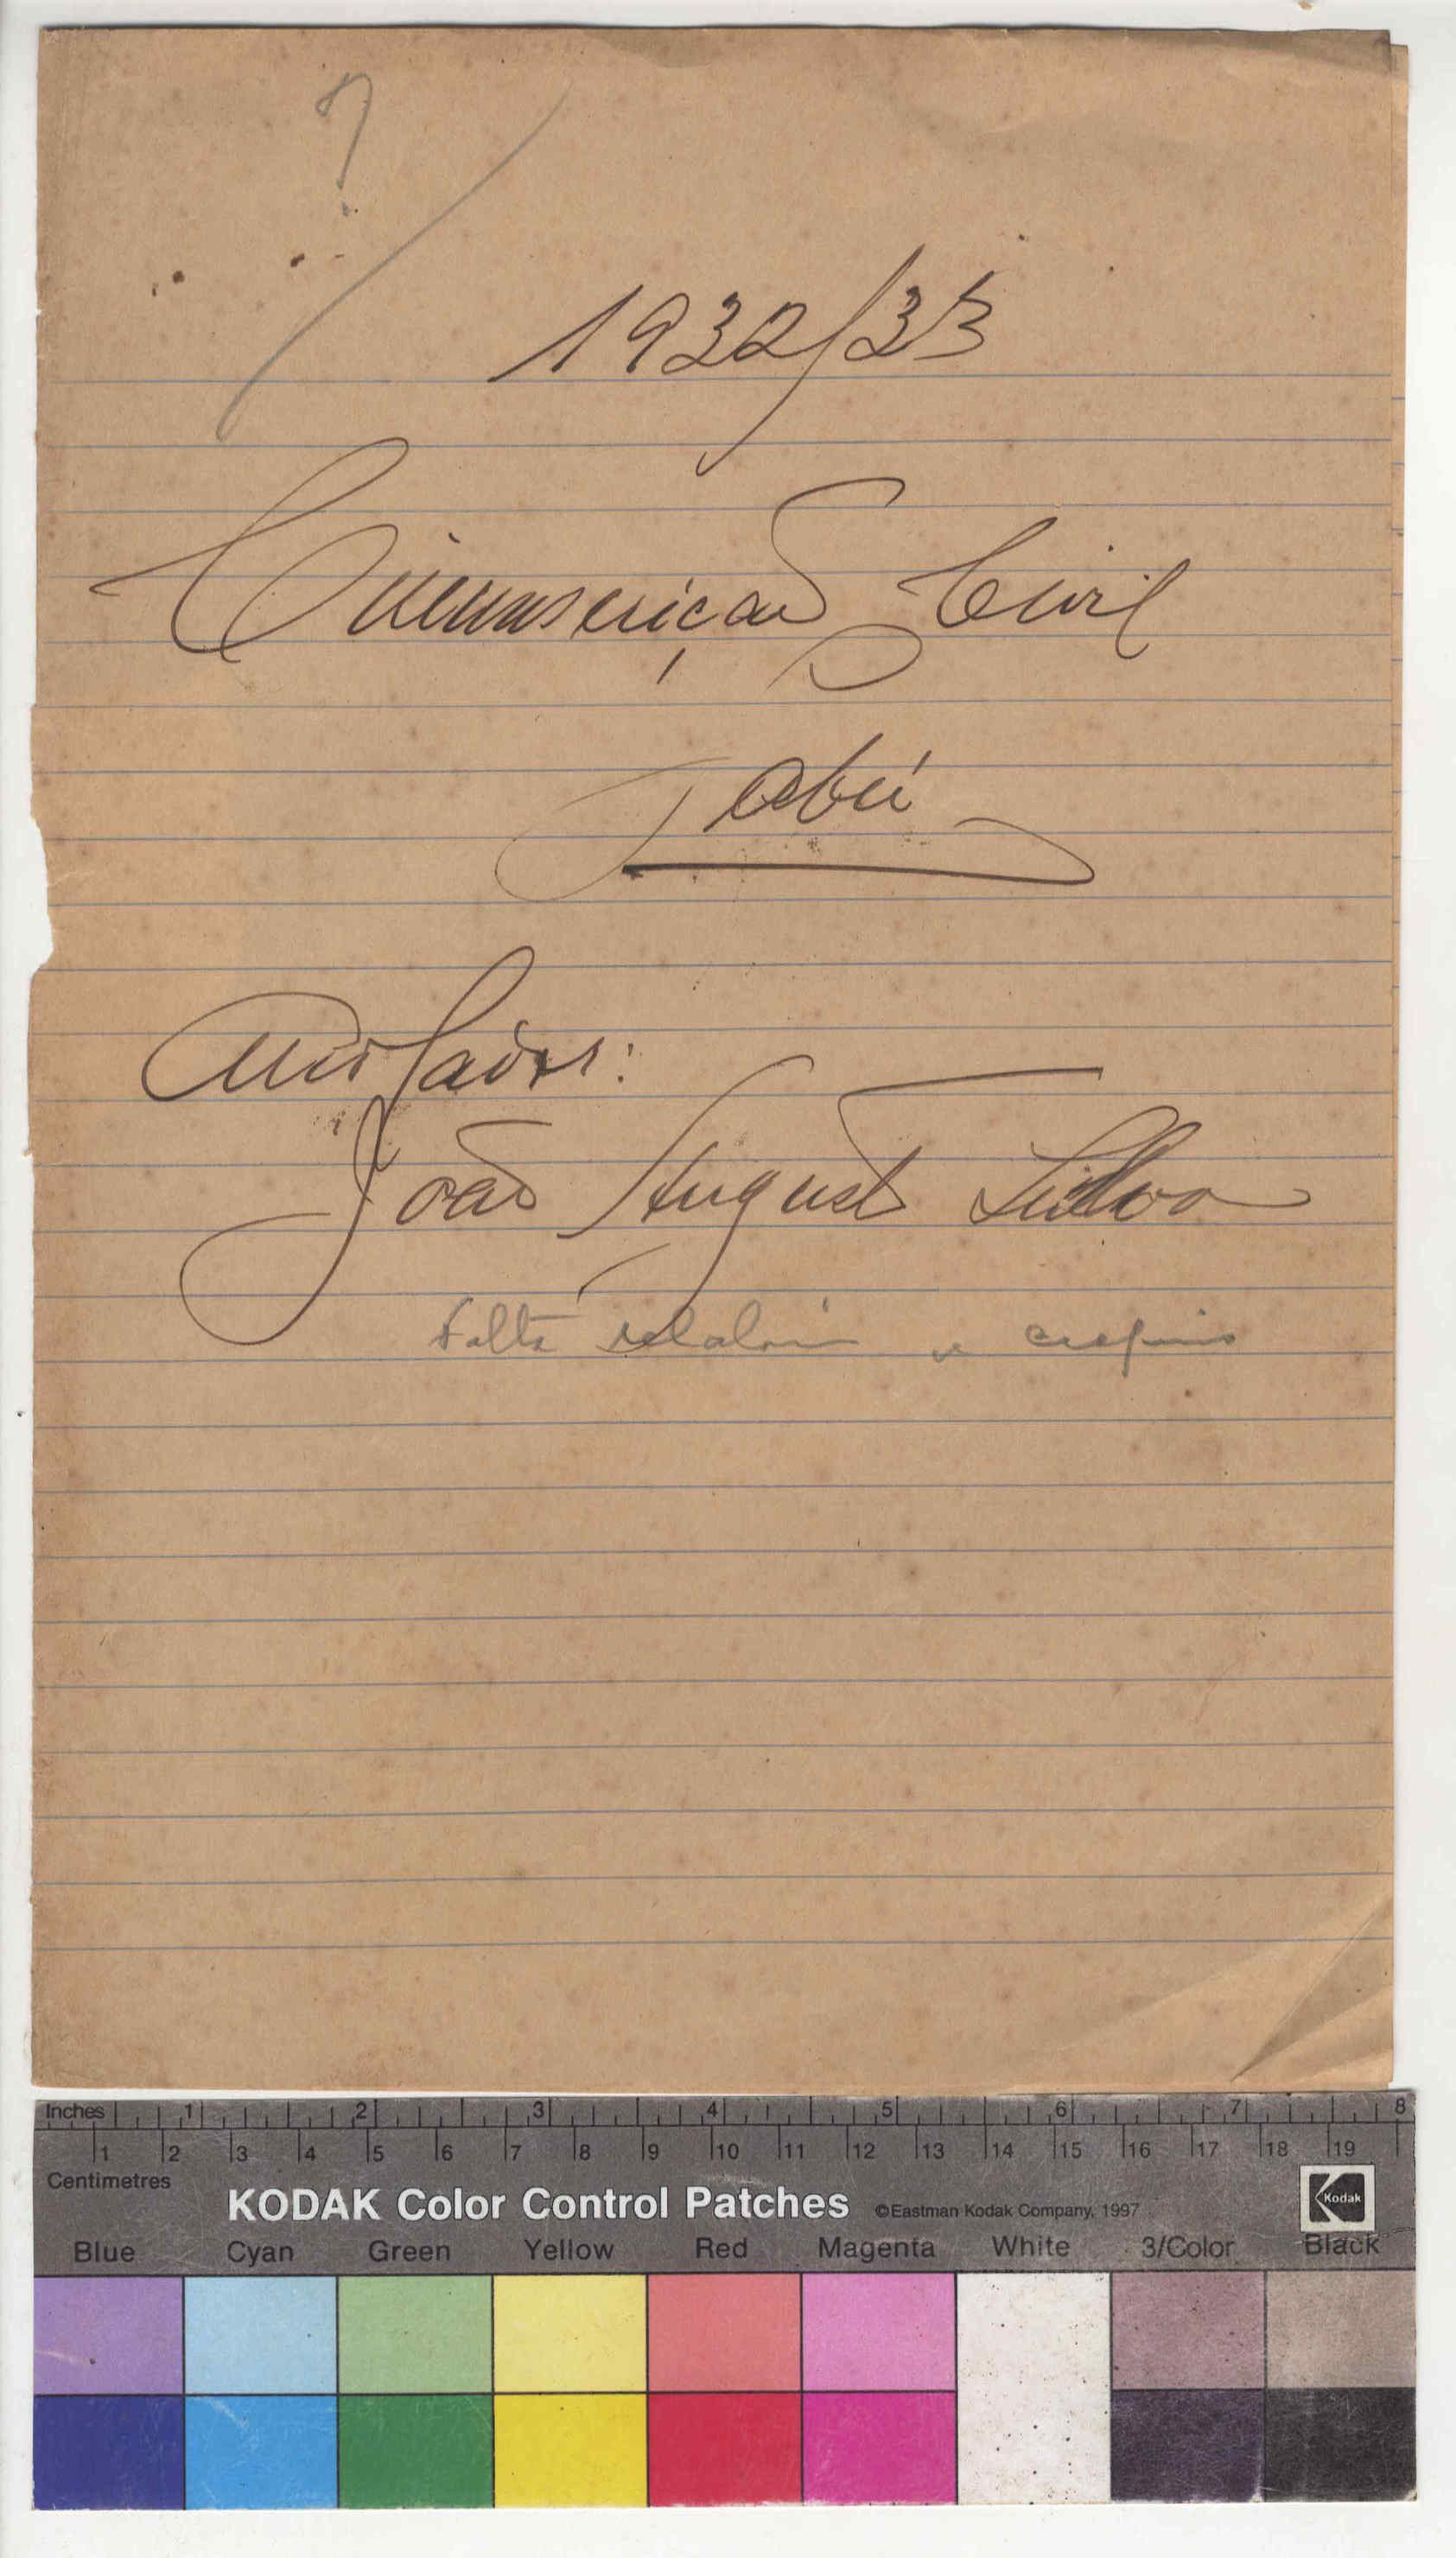 ?
1932/33
Circunscrição Civil
Gabú
João Augusto Silva
Falta relatório e croquis
Inches 1 2 3 4 5 6 7 8
1 2 3 4 5 6 7 8 9 10 11 12 13 14 15 16 17 18 19
Centimetres
KODAK Color Control Patches ©Eastman Kodak Company, 1997 Kodak
Blue Cyan Green Yellow Red Magenta White 3/Color Black